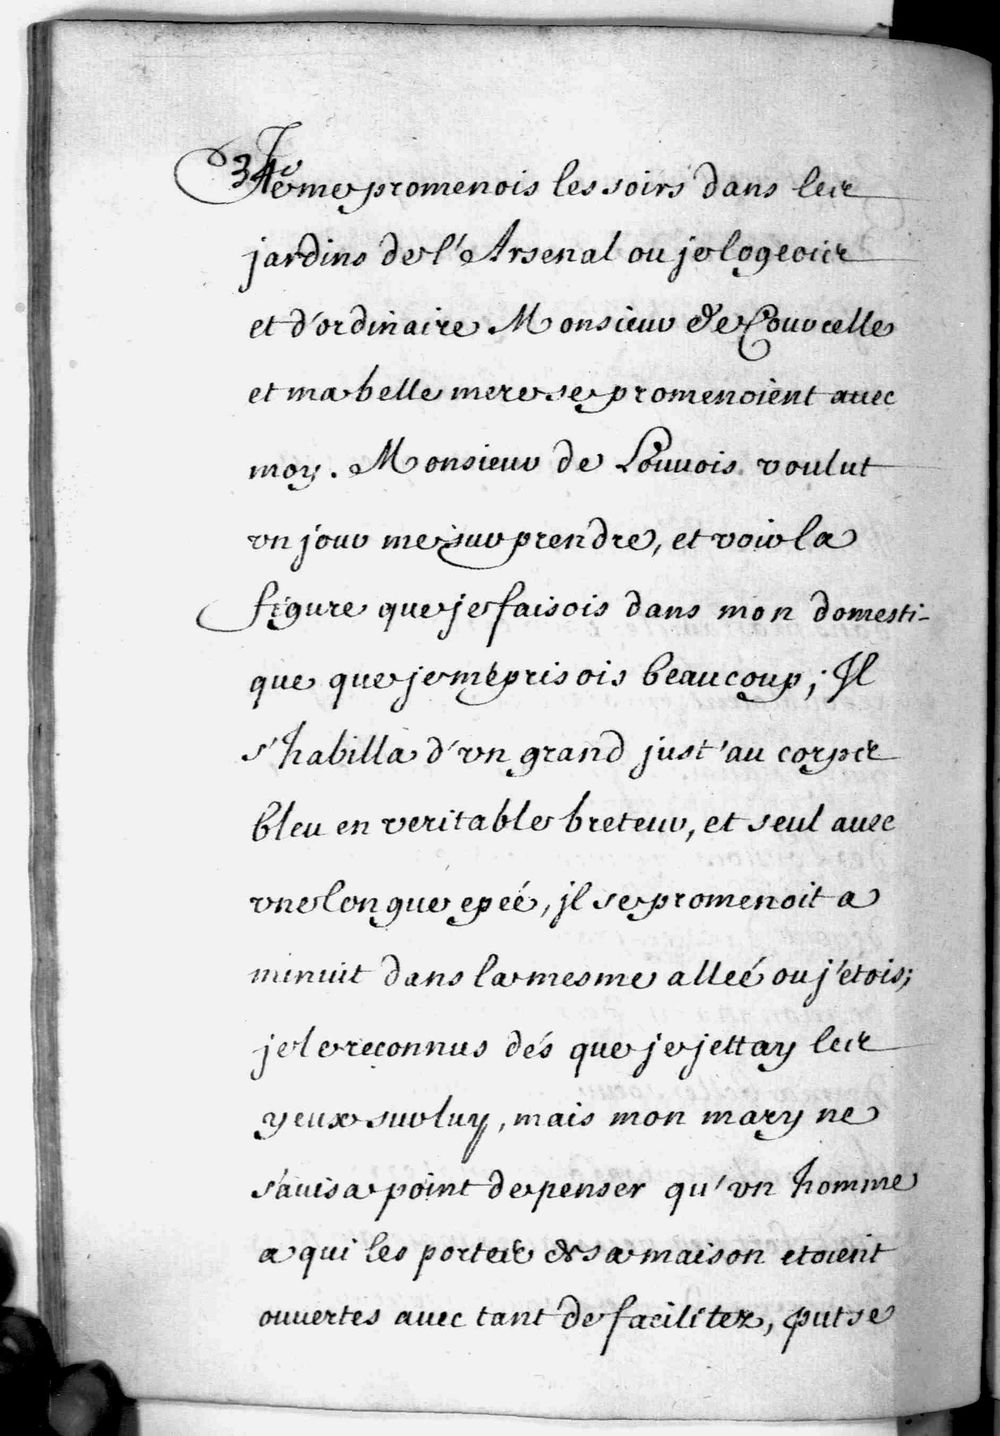 34
Je me promenois les soirs dans les
jardins de l'Arsenal ou je logeois
et d'ordinaire Monsieur de Courcelles
et ma belle mere se promenoient avec
moy. Monsieur de Louvois voulut
vn jour me surprendre, et voir la
figure que je faisois dans mon domesti-
que que je méprisois beaucoup; Il
s'habilla d'vn grand just'au corps
bleu en veritable breteur, et seul avec
vne longue epeé, jl se promenoit a
minuit dans la mesme alleé ou j'etois;
je le reconnus dés que je jettay les
yeux sur luy, mais mon mary ne
s'auisa point de penser qu'vn homme
a qui les portes de sa maison etoient
ouvertes avec tant de facilitez, put se